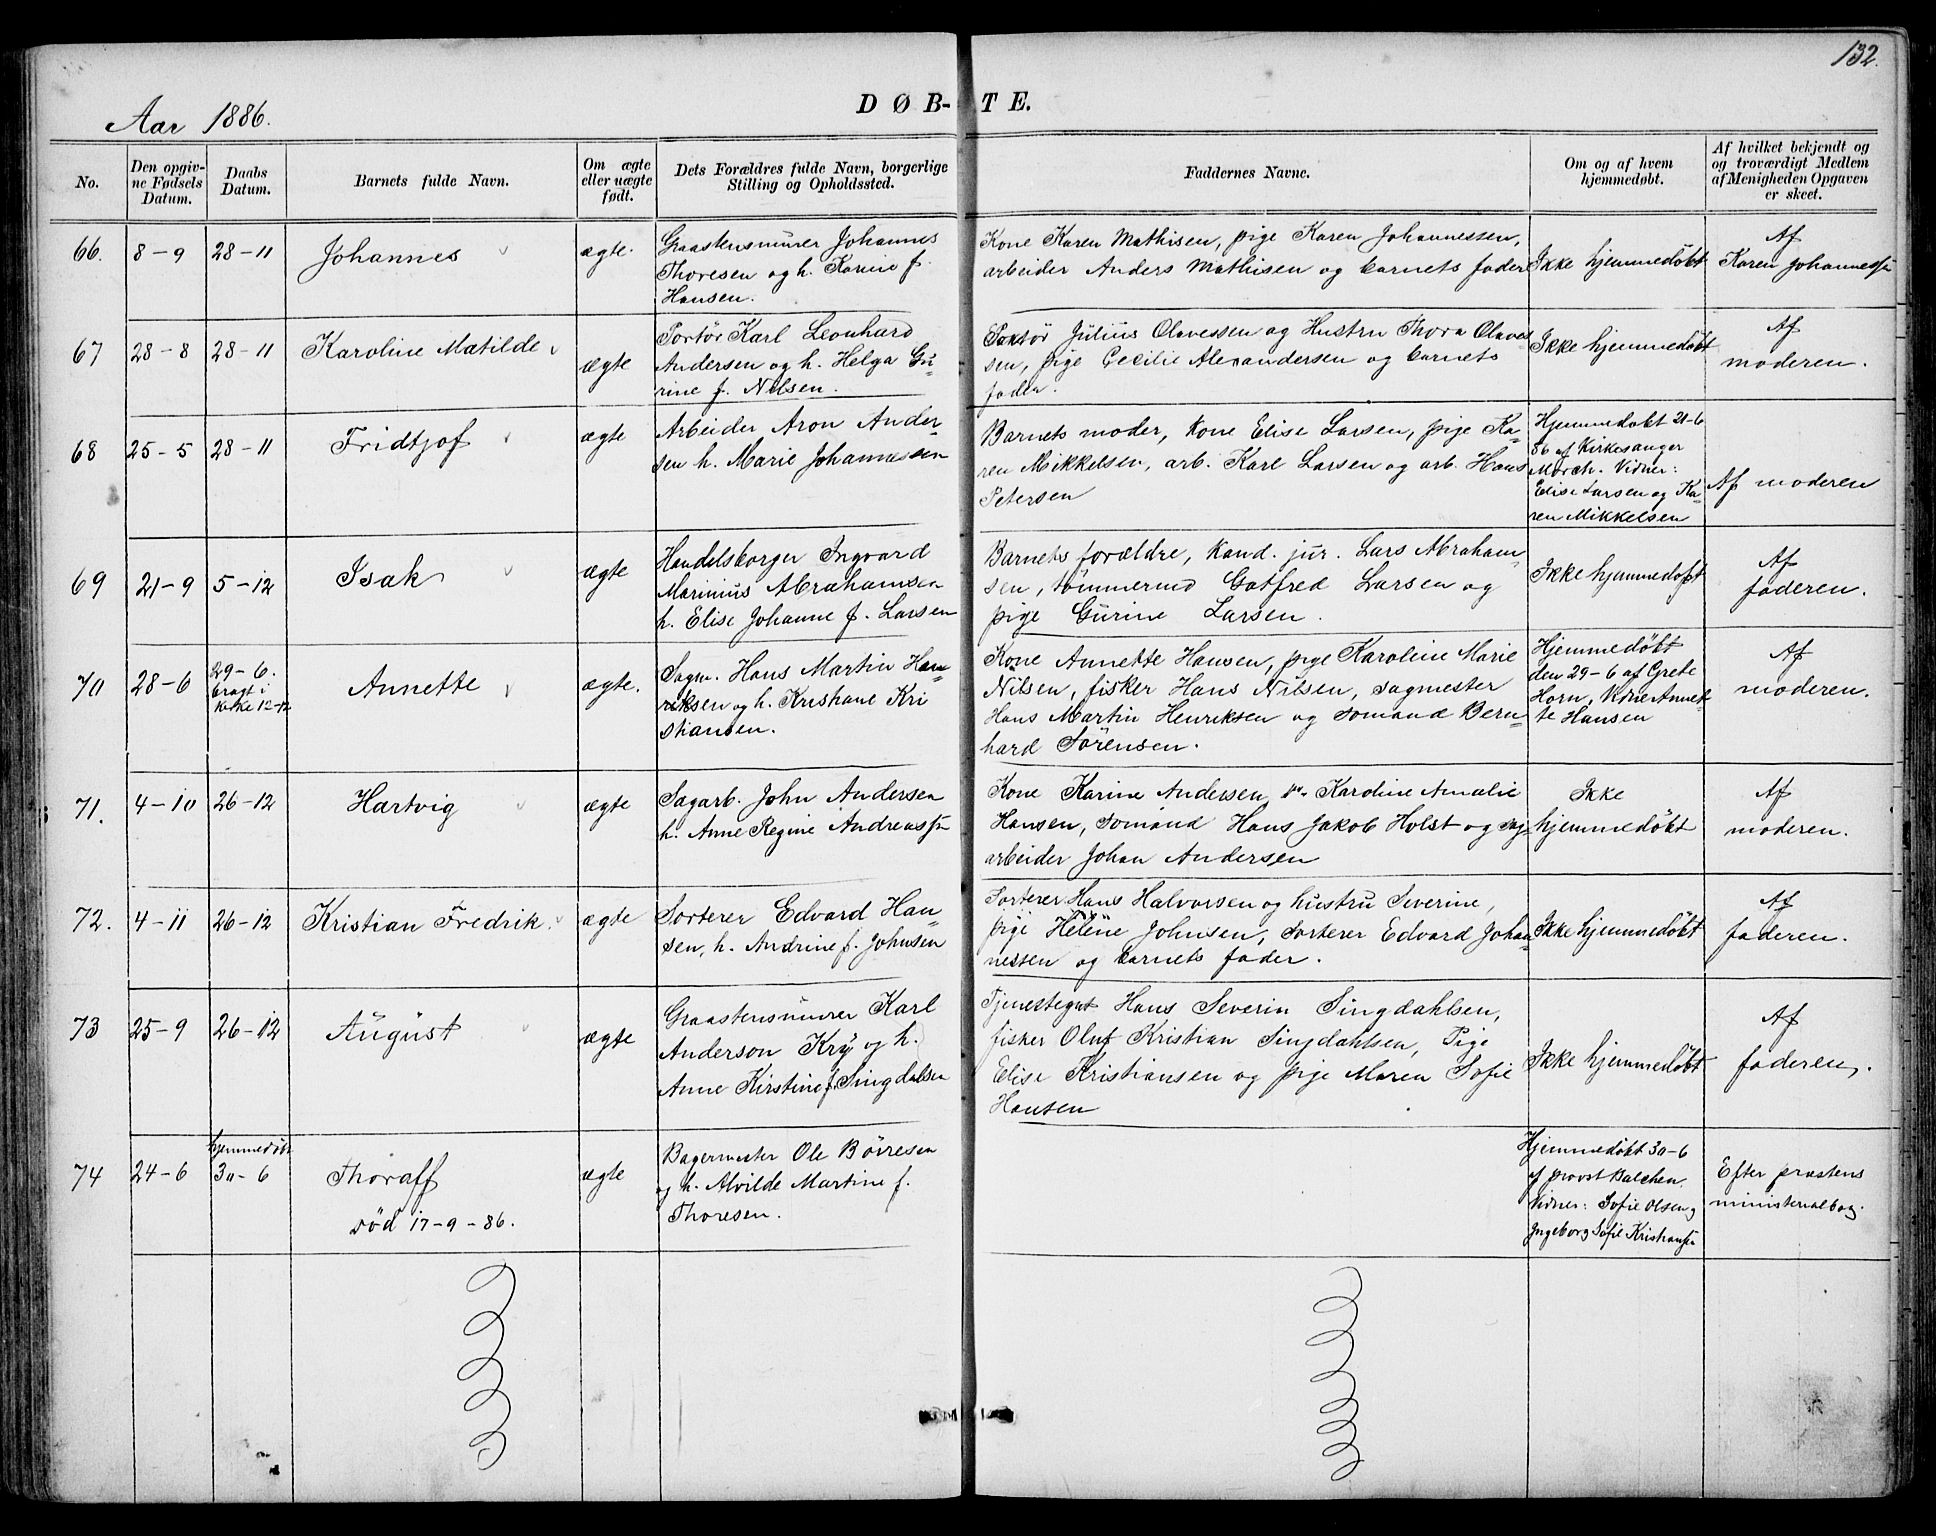 132.
Aar 1886.
DØB-TE.
No.
Den opgiv-
ne Fødsels
Datum.
Daabs
Datum.
Barnets fulde Navn.
Om ægte
eller uægte
født.
Dets Forældres fulde Navn, borgerlige
Stilling og Opholdssted.
Faddernes Navne.
Om og af hvem
hjemmedøbt.
Af hvilket bekjendt og
og troværdigt Medlem
af Menigheden Opgaven
er skeet.
66. 8-9 28-11 Johannes ægte.
Graastensmurer Johannes
Thoresen og h. Karine f.
Hansen.
Kone Karen Mathisen, pige Karen Johannessen,
arbeider Anders Mathisen og barnets fader
Ikke hjemmedøbt
Af
Karen Johannessen
67 28-8 28-11 Karoline Matilde ægte
Portør Karl Leonhard
Andersen og h. Helga Gu-
rine f. Nilsen.
Julius Olavessen og Hustru Thora Olaves-
sen, pige Cecilie Alexandersen og barnets
fader.
Ikke hjemmedøbt
Af
moderen.
68 25-5 28-11 Fridtjof ægte
Arbeider Aron Ander-
sen h. Marie Johannessen
Barnets moder, Kone Elise Larsen, pige Ka-
ren Mikkelsen, arb. Karl Larsen og arb. Hans
Petersen
Hjemmedøbt 21-6
86 af Kirkesanger
Mørch. Vidner:
Elise Larsen og Ka-
ren Mikkelsen
Af moderen
69 21-9 5-12 Isak ægte
Handelsborger Ingvard
Marinius Abrahamsen
h. Elise Johanne f. Larsen
Barnets forældre, Kand. jur. Lars Abraham-
sen, tømmermd Gotfred Larsen og
pige Gurine Larsen.
Ikke hjemmedøpt
Af
faderen.
70 28-6
29-6.
bragt i
kirke 12-12
Annette ægte.
Sagm. Hans Martin Hen-
riksen og h. Kristiane Kri
stiansen.
Kone Annette Hansen, pige Karoline Marie
Nilsen, fisker Hans Nilsen, sagmester
Hans Martin Henriksen og sømand Bern-
hard Sörensen.
Hjemmedøbt
den 29-6 af Grete
Horn, Vidne Annet-
te Hansen
Af
moderen.
71. 4-10 26-12 Hartvig ægte
Sagarb. John Andersen
h. Anne Regine Andreassen
Kone Karine Andersen, Karoline Amalie
Hansen, sømand Hans Jakob Holst og sag-
arbeider Johan Andersen
Ikke
hjemmedøbt
Af
moderen.
72. 4-11 26-12 Kristian Fredrik. ægte
Sorterer Edvard Han-
sen, h. Andrine f. Johnsen
Sorterer Hans Halvorsen og hustru Severine,
pige Helene Johnsen, sorterer Edvard Johan-
nessen og barnets fader.
Ikke hjemmedøbt
Af
faderen.
73 25-9 26-12 August ægte
Graastensmurer Karl
Anderson Kry og h.
Anne Kirstine f. Singdalsen
Tjenestegut Hans Severin Singdahlsen,
fisker Oluf Kristian Singdahlsen, Pige
Elise Kristiansen og pige Maren Sofie
Hansen
Ikke hjemmedøbt
Af
faderen.
74 24-6
hjemmedøbt
30-6
Thoralf
død 17-9-86.
ægte
Bagermester Ole Börresen
og h. Alvilde Martine f.
Thoresen.
Hjemmedøbt 30-6
af provst Balchen.
Vidner: Sofie Olsen og
Ingeborg Sofie Kristiansen
Efter præstens
ministerialbog.